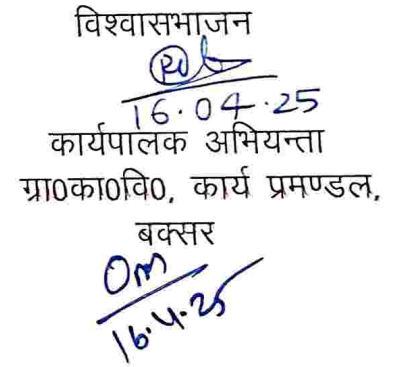 विश्वासभाजन
16.04.25
कार्यपालक अभियन्ता
ग्रा0का0वि0, कार्य प्रमण्डल,
बक्सर
Om
16.4.25